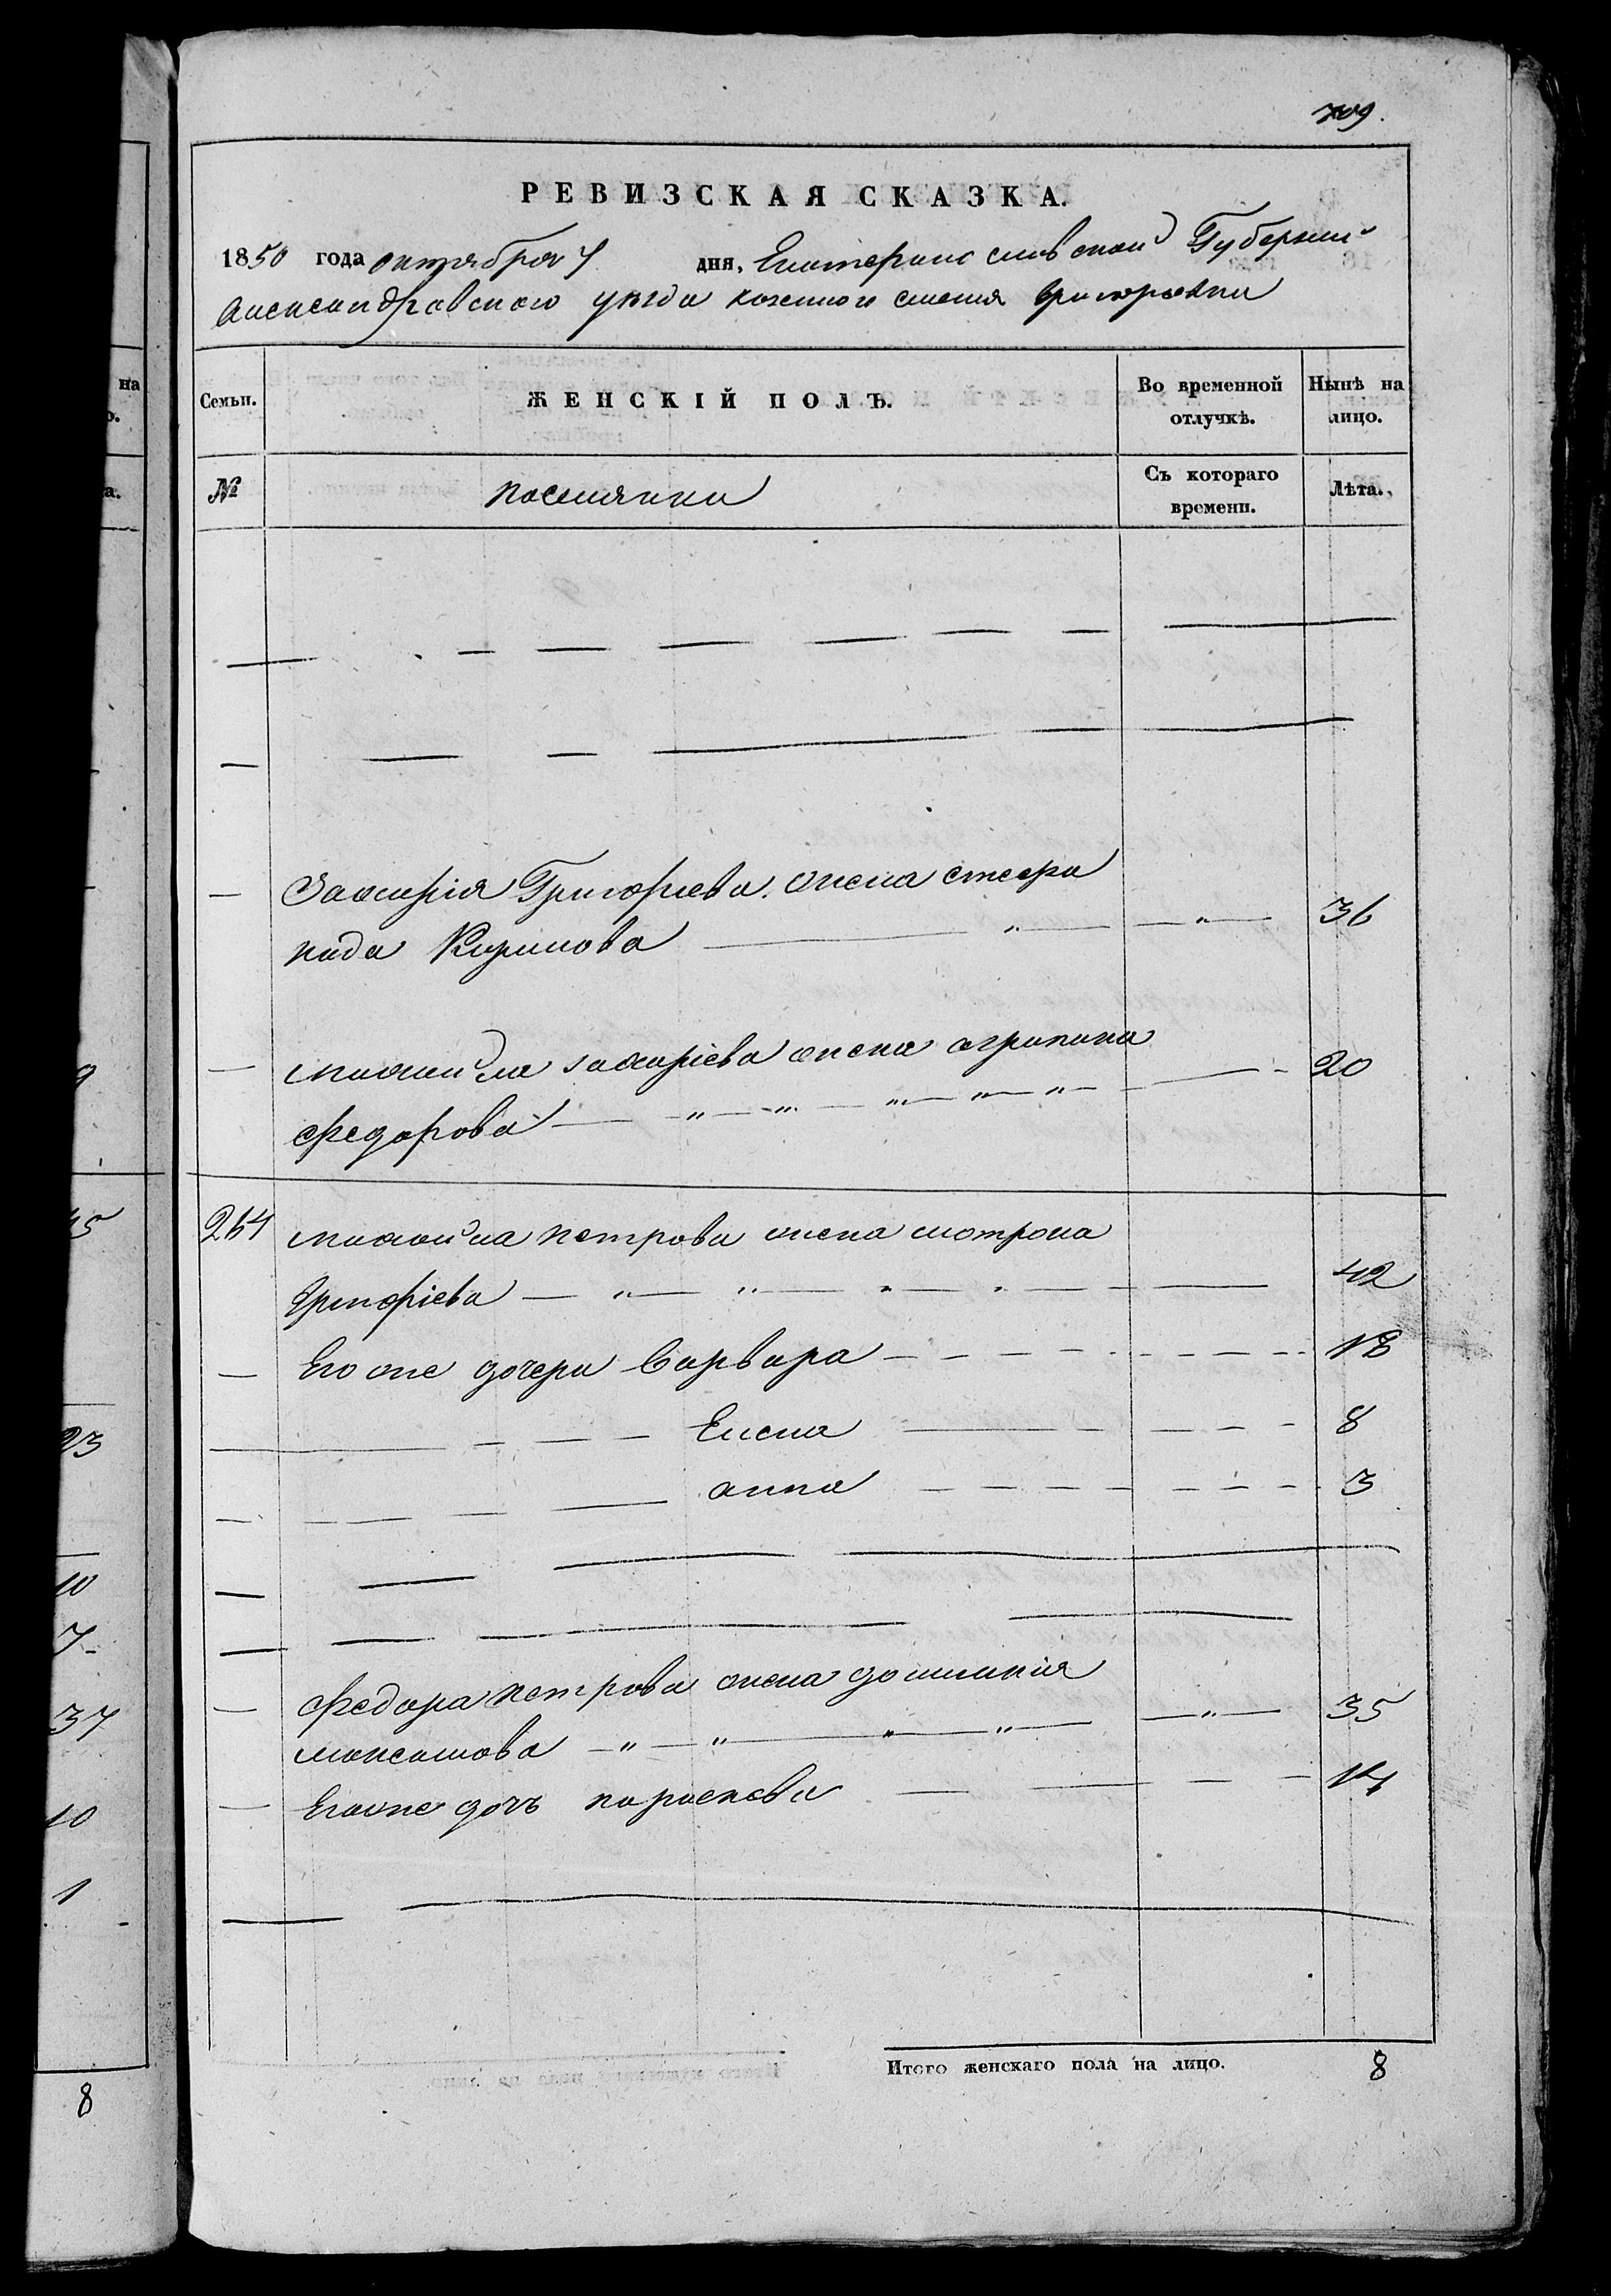 709.
РЕВИЗСКАЯ СКАЗКА.
1850 года октября 7 дня, Екатеринославской Губернии
Александровского уезда казенного селения Григоровки
Семьи. ЖЕНСКІЙ ПОЛЪ. Во временной отлучкѣ. Нынѣ на лицо.
№ поселянки Съ котораго времени. Лѣта.
Захарія Григорьева жена степа
нида Киримова 36
михайла захаріева жена агрипина
федорова 20
264 михайла петрова жена мотрона
Григоріева 42
Его же дочери Варвара 18
Елена 8
анна 3
федора петрова жена домникія
максимова 35
Егоже дочь параскева 14
Итого женскаго пола на лицо. 8
на
о.
а.
9
45
23
10
7
37
10
1
8